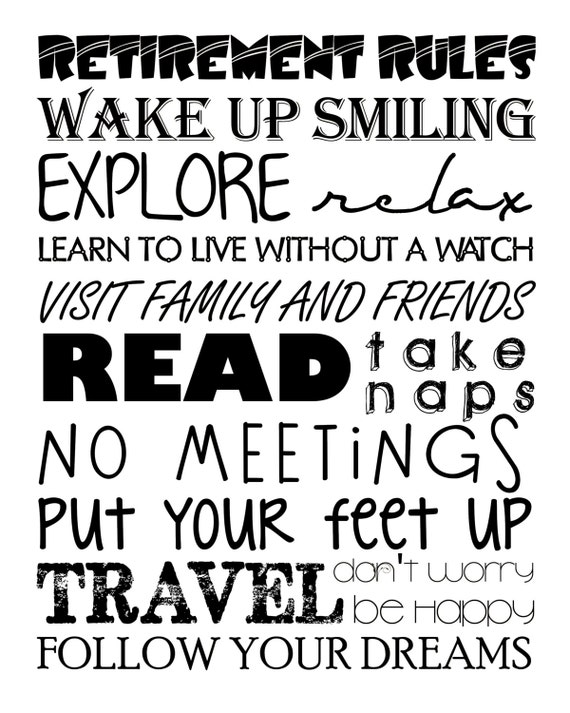 RETIREMENT RULES
WAKE UP SMILING
EXPLORE relax
LEARN TO LIVE WITHOUT A WATCH
VISIT FAMILY AND FRIENDS
READ take naps
NO MEETiNGS
PUt YOUR feet UP
TRAVEL don't worry
be Happy
FOLLOW YOUR DREAMS